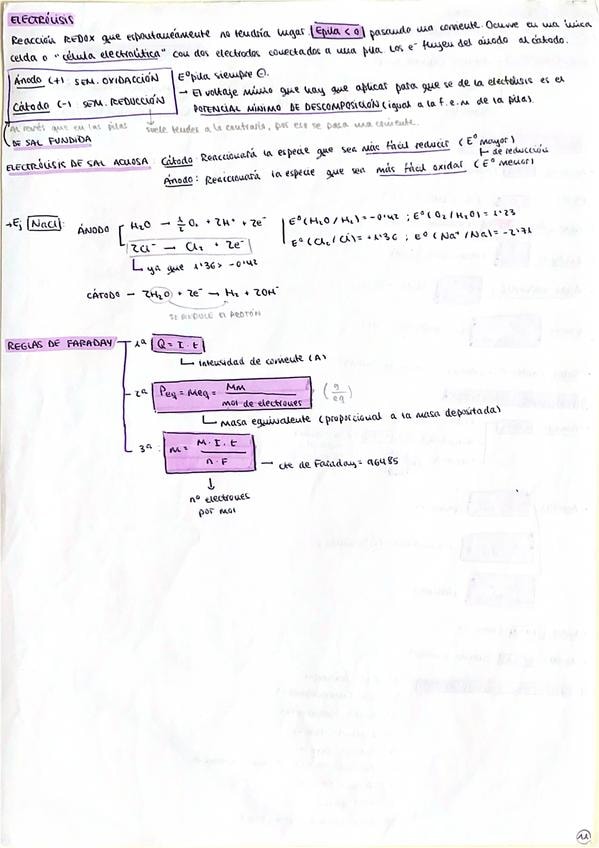 ELECTRÓLISIS
Reacción REDOX que espontáneamente no tendría lugar (Epila < 0) pasando una corriente. Ocurre en una única
celda o "célula electrolítica" con dos electrodos conectados a una pila. Los e⁻ fluyen del ánodo al cátodo.
Ánodo (+) SEM. OXIDACCIÓN
Cátodo (-) SEM. REDUCCIÓN
E°pila siempre ⊖.
→ El voltaje mínimo que hay que aplicar para que se de la electólisis es el
POTENCIAL MÍNIMO DE DESCOMPOSICIÓN (igual a la f.e.m de la pila).
Al revés que en las pilas
suele tender a lo contrario, por eso se pasa una corriente.
DE SAL FUNDIDA
ELECTRÓLISIS DE SAL ACUOSA
Cátodo: Reaccionará la especie que sea más fácil reducir (E° mayor)
de reducción
Ánodo: Reaccionará la especie que sea más fácil oxidar (E° menor)
→ Ej NaCl:
ÁNODO
H₂O → ½ O₂ + 2H⁺ + 2e⁻
2Cl⁻ → Cl₂ + 2e⁻
ya que 1'36 > -0'42
E°(H₂O/H₂) = -0'42 ; E°(O₂/H₂O) = 1'23
E°(Cl₂/Cl) = +1'36 ; E°(Na⁺/Na) = -2'71
CÁTODO - 2H₂O + 2e⁻ → H₂ + 2OH⁻
SE ANULE EL PROTÓN
REGLAS DE FARADAY
1ª Q = I · t
Intensidad de corriente (A)
2ª Peq = meq = Mm / mol de electrones (g/eq)
masa equivalente (proporcional a la masa depositada)
3ª: m = M · I · t / n · F → cte de Faraday = 96485
nº electrones
por mol
11